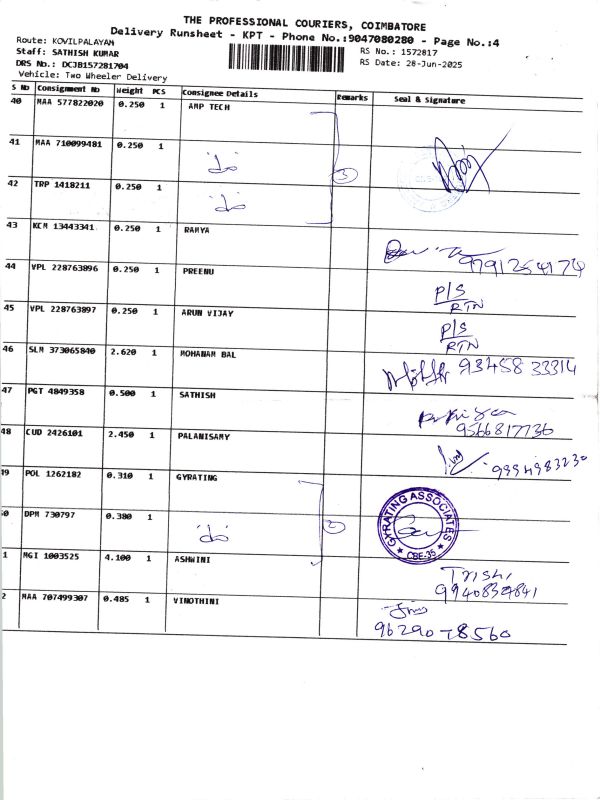 THE PROFESSIONAL COURIERS, COIMBATORE
Delivery Runsheet - KPT - Phone No.:9047080280 - Page No.:4
Route: KOVILPALAYAM
RS No.: 1572817
Staff: SATHISH KUMAR
RS Date: 28-Jun-2025
DRS No.: DCJB157281704
Vehicle: Two Wheeler Delivery
S No Consignment No Weight PCS Consignee Details Remarks Seal & Signature
40 MAA 577822020 0.250 1 AMP TECH
41 MAA 710099481 0.250 1
3
42 TRP 1418211 0.250 1
43 KCM 13443341 0.250 1 RAMYA
9791254174
44 VPL 228763896 0.250 1 PREENU P/S
RTN
45 VPL 228763897 0.250 1 ARUN VIJAY P/S
RTN
46 SLM 373065840 2.620 1 MOHANAM BAL 93458 33314
47 PGT 4849358 0.500 1 SATHISH
9566817736
48 CUD 2426101 2.450 1 PALANISAMY
9994983230
49 POL 1262182 0.310 1 GYRATING
GYRATING ASSOCIATES
CBE-35
0 DPM 730797 0.380 1
2
1 MGI 1003525 4.100 1 ASHWINI
9940839841
2 MAA 707499307 0.485 1 VINOTHINI
96290 78560